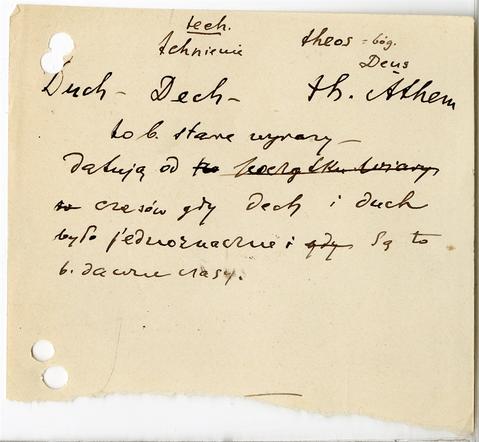 tech.
tchnienie theos = bóg.
Deus
Duch - Dech - th. Athem
to b. stare wyrazy -
datują od początku wiary
czasów gdy dech i duch
było jednoznaczne i gdy są to
b. dawne czasy.